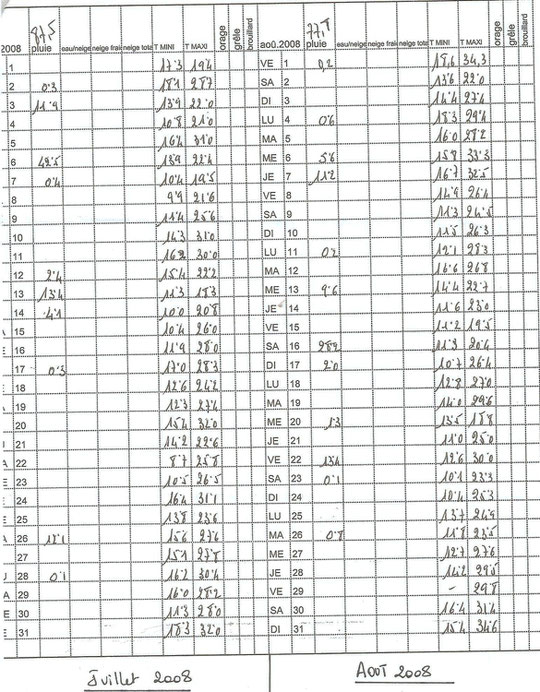 87,5 77,8
2008 pluie eau/neige neige fraî neige tota T MINI T MAXI orage grêle brouillard aoû.2008 pluie eau/neige neige fraî neige tota T MINI T MAXI orage grêle brouillard
1 17.3 19.4 VE 1 0,2 18,6 34,3
2 0.3 18.1 28.7 SA 2 13.6 22.0
3 11.9 13.9 22.0 DI 3 14.4 27.4
4 10.8 21.0 LU 4 0.6 18.3 29.4
5 16.4 31.0 MA 5 16.0 28.2
6 42.5 13.9 22.4 ME 6 5.6 15.8 33.3
7 0.4 10.4 19.5 JE 7 11.2 16.7 32.5
8 9.9 21.6 VE 8 14.9 26.4
9 11.4 25.6 SA 9 11.3 24.5
10 14.3 31.0 DI 10 11.5 26.3
11 16.2 30.0 LU 11 0.2 12.1 28.3
12 2.4 15.4 22.2 MA 12 16.6 26.8
13 13.4 11.3 18.3 ME 13 9.6 14.4 22.7
14 4.1 10.0 20.8 JE 14 11.6 23.0
15 10.4 26.0 VE 15 11.2 19.5
16 11.9 28.0 SA 16 28.2 11.3 20.4
17 0.3 17.0 28.3 DI 17 2.0 10.7 26.4
18 12.6 24.2 LU 18 12.8 27.0
19 12.3 27.4 MA 19 14.0 29.6
20 15.4 32.0 ME 20 5.3 13.5 18.8
21 14.2 22.6 JE 21 11.0 25.0
22 8.7 25.8 VE 22 13.4 12.6 30.0
23 10.5 26.5 SA 23 0.1 10.1 23.3
24 16.4 31.1 DI 24 10.4 25.3
25 13.8 23.6 LU 25 13.7 24.9
26 12.1 15.6 27.6 MA 26 0.8 11.8 23.5
27 15.1 27.8 ME 27 12.7 27.6
28 0.1 16.2 30.4 JE 28 14.2 29.5
29 16.0 28.2 VE 29 - 29.8
30 11.3 28.0 SA 30 16.4 31.4
31 18.3 32.0 DI 31 15.4 34.6
Juillet 2008 AOUT 2008